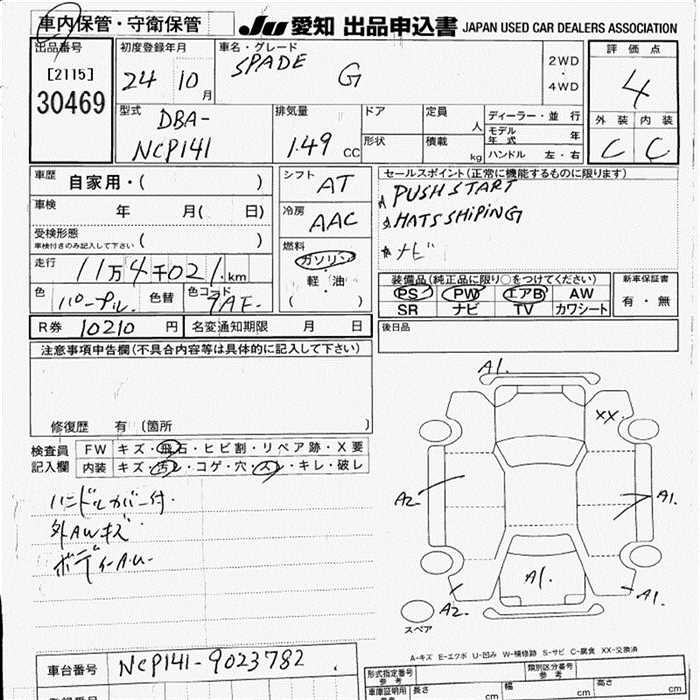 車内保管・守衛保管
JU 愛知 出品申込書 JAPAN USED CAR DEALERS ASSOCIATION
出品番号
[2115]
30469
初度登録年月
24 10月
車名・グレード
SPADE G
2WD
・
4WD
評価点
4
外装 内装
C C
型式
DBA-
NCP141
排気量
1.49 CC
ドア
形状
定員 人
積載 kg
ディーラー・並行
モデル年式 年
ハンドル 左・右
車歴 自家用・( )
車検 年 月( 日)
受検形態
車検付きのみ記入して下さい ( )
走行 11万4千021.km
色 パープル.
色替
色コード 9AF.
シフト AT
冷房 AAC
燃料
ガソリン
軽・油
( )
セールスポイント(正常に機能するものに限ります)
PUSH START
HATS SHIPING
ナビ
装備品(純正品に限り○をつけてください)
PS PW エアB AW
SR ナビ TV カワシート
新車保証書
有・無
後日品
R券 10210 円
名変通知期限 月 日
注意事項申告欄(不具合内容等は具体的に記入して下さい)
修復歴 有 〔箇所 〕
検査員
記入欄
FW キズ・飛石・ヒビ割・リペア跡・X要
内装 キズ・汚レ・コゲ・穴・スレ・キレ・破レ
ハンドルカバー付.
外AWキズ
ボディーA.U.
A1.
XX.
A2
A1.
A1.
A2.
A1.
スペア
A-キズ E-エクボ U-凹み W-補修跡 S-サビ C-腐食 XX-交換済
車台番号 NCP141-9023782
形式指定番号
参考
類別区分番号
参考
車庫証明用
長さ cm
幅 cm
高さ cm